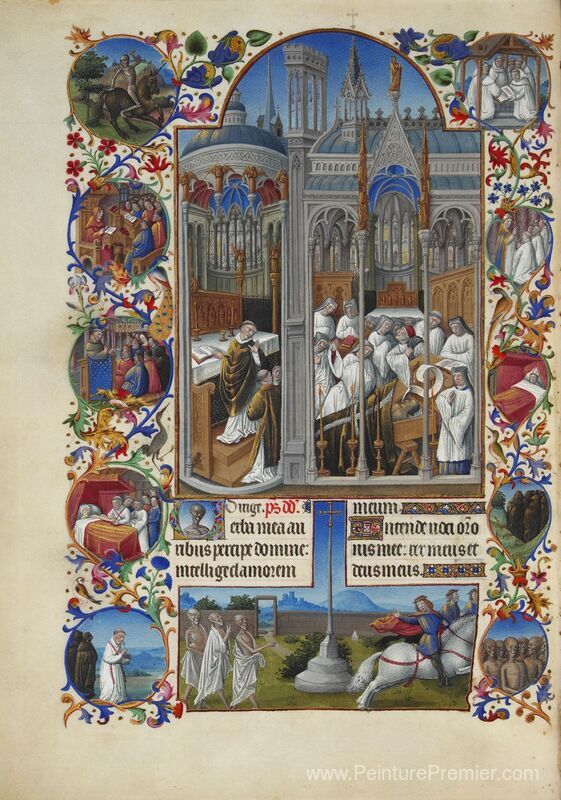 Dirige. ps dd.
Verba mea au
ribus percipe domine:
intellige clamorem
meum.
Intende uoci oro
nis mee: rex meus et
deus meus.
www.PeinturePremier.com